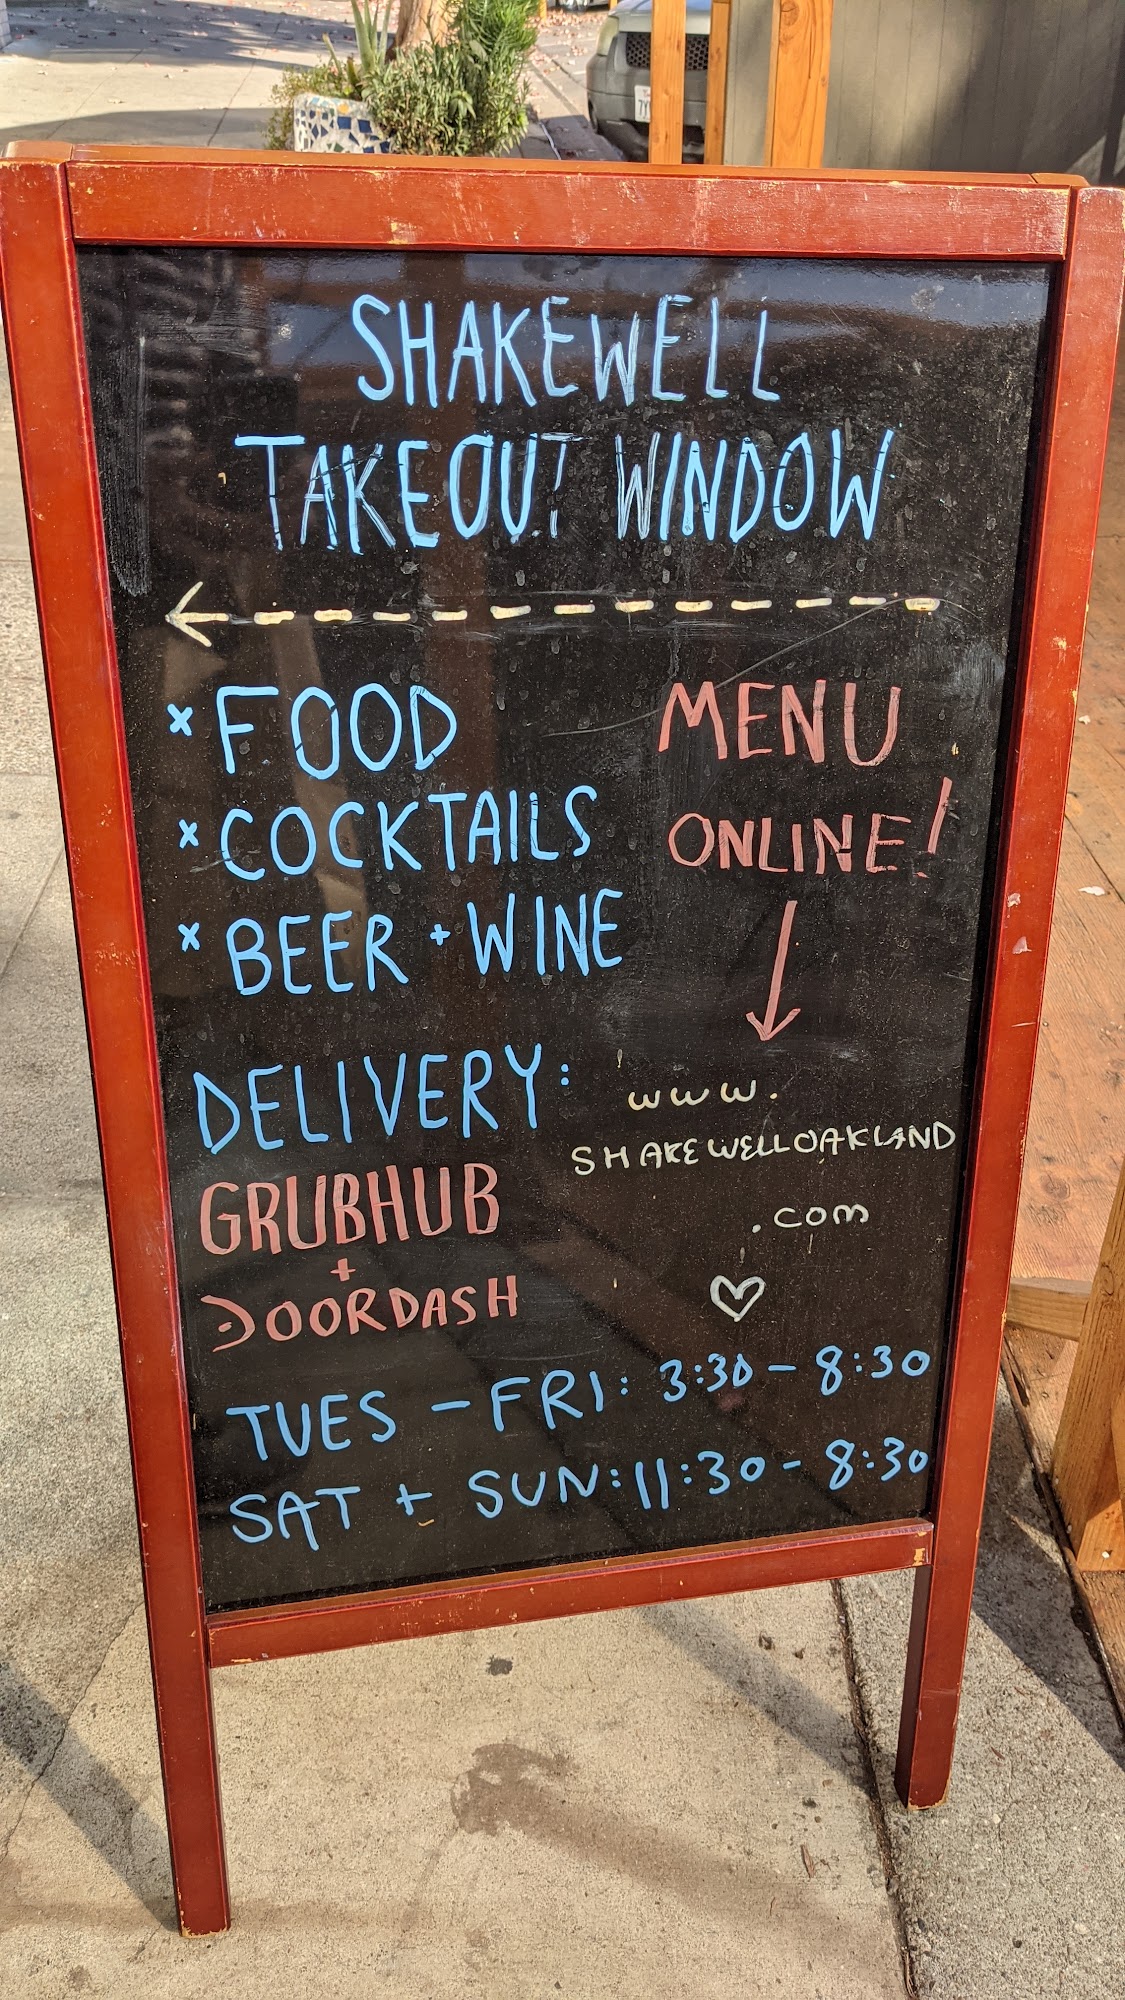 SHAKEWELL
TAKEOUT WINDOW
x FOOD
x COCKTAILS
x BEER + WINE
MENU
ONLINE!
DELIVERY:
GRUBHUB
+
DOORDASH
www.
SHAKEWELLOAKLAND
.com
TUES - FRI: 3:30 - 8:30
SAT + SUN: 11:30 - 8:30